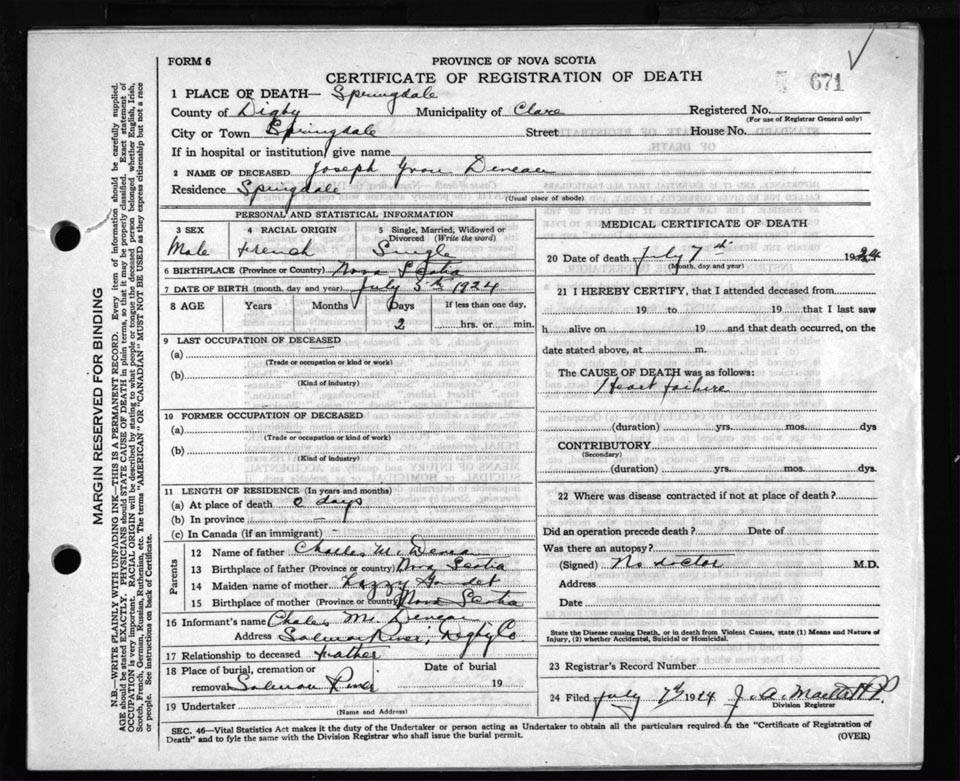 FORM 6
PROVINCE OF NOVA SCOTIA
CERTIFICATE OF REGISTRATION OF DEATH
671
1 PLACE OF DEATH— Springdale
County of Digby Municipality of Clare Registered No.
(For use of Registrar General only)
City or Town Springdale Street House No.
If in hospital or institution, give name
2 NAME OF DECEASED Joseph Yvon
Residence Springdale
(Usual place of abode)
PERSONAL AND STATISTICAL INFORMATION
3 SEX 4 RACIAL ORIGIN 5 Single, Married, Widowed or
Divorced (Write the word)
Male French Single
6 BIRTHPLACE (Province or Country) Nova Scotia
7 DATE OF BIRTH (month, day and year) July 5th 1924
8 AGE Years Months Days If less than one day,
2 hrs. or min.
9 LAST OCCUPATION OF DECEASED
(a)
(Trade or occupation or kind of work)
(b)
(Kind of industry)
10 FORMER OCCUPATION OF DECEASED
(a)
(Trade or occupation or kind of work)
(b)
(Kind of industry)
11 LENGTH OF RESIDENCE (In years and months)
(a) At place of death 2 days
(b) In province —
(c) In Canada (if an immigrant)
Parents
12 Name of father Charles M.
13 Birthplace of father (Province or Country) Nova Scotia
14 Maiden name of mother
15 Birthplace of mother (Province or country) Nova Scotia
16 Informant's name M.
Address Salmon River, Digby Co
17 Relationship to deceased Father
18 Place of burial, cremation or Date of burial
removal Salmon River 19
19 Undertaker
(Name and Address)
MEDICAL CERTIFICATE OF DEATH
20 Date of death July 7th 1924
(Month, day and year)
21 I HEREBY CERTIFY, that I attended deceased from
19 to 19 that I last saw
h alive on 19 and that death occurred, on the
date stated above, at m.
The CAUSE OF DEATH was as follows:
Heart failure
(duration) yrs. mos. dys
CONTRIBUTORY
(Secondary)
(duration) yrs. mos. dys.
22 Where was disease contracted if not at place of death?
Did an operation precede death? Date of
Was there an autopsy?
(Signed) No doctor M.D.
Address
Date
State the Disease causing Death, or in death from Violent Causes, state (1) Means and Nature of
Injury, (2) whether Accidental, Suicidal or Homicidal.
23 Registrar's Record Number
24 Filed July 7th 1924 J. A.
Division Registrar
SEC. 46—Vital Statistics Act makes it the duty of the Undertaker or person acting as Undertaker to obtain all the particulars required in the "Certificate of Registration of
Death" and to fyle the same with the Division Registrar who shall issue the burial permit. (OVER)
MARGIN RESERVED FOR BINDING
N.B.—WRITE PLAINLY WITH UNFADING INK—THIS IS A PERMANENT RECORD. Every item of information should be carefully supplied.
AGE should be stated EXACTLY. PHYSICIANS should STATE CAUSE OF DEATH in plain terms, so that it may be properly classified. Exact statement of
OCCUPATION is very important. RACIAL ORIGIN will be described by stating to what people or tongue the deceased person belonged whether English, Irish,
Scotch, French, German, Russian, Ruthenian, etc. The terms "AMERICAN" OR "CANADIAN" MUST NOT BE USED as they express citizenship but not a race
or people. See instructions on back of Certificate.